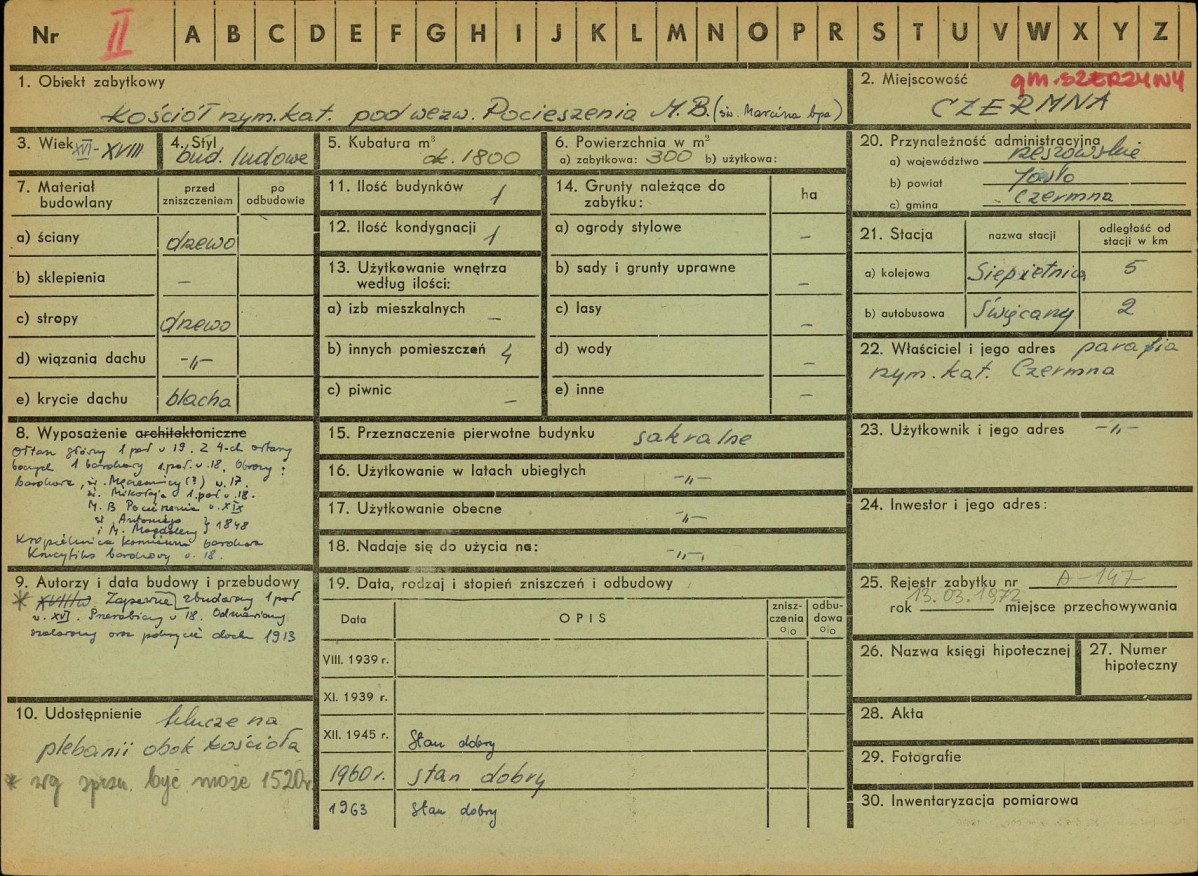 Nr II A B C D E F G H I J K L M N O P R S T U V W X Y Z
1. Obiekt zabytkowy
kościół rzym. kat. pod wezw. Pocieszenia M.B. (św. Marcina bpa)
2. Miejscowość gm. SZERZYNY
CZERMNA
3. Wiek XVI - XVIII
4. Styl
bud. ludowe
5. Kubatura m³
ok. 1800
6. Powierzchnia w m²
a) zabytkowa: 300 b) użytkowa:
20. Przynależność administracyjna
a) województwo rzeszowskie
b) powiat Jasło
c) gmina Czermna
7. Materiał budowlany
przed zniszczeniem
po odbudowie
a) ściany drzewo
b) sklepienia –
c) stropy drzewo
d) wiązania dachu -„-
e) krycie dachu blacha
11. Ilość budynków 1
12. Ilość kondygnacji 1
13. Użytkowanie wnętrza
według ilości:
a) izb mieszkalnych –
b) innych pomieszczeń 4
c) piwnic –
14. Grunty należące do
zabytku:
ha
a) ogrody stylowe –
b) sady i grunty uprawne –
c) lasy –
d) wody –
e) inne –
21. Stacja
nazwa stacji
odległość od
stacji w km
a) kolejowa Siepietnica 5
b) autobusowa Święcany 2
22. Właściciel i jego adres parafia
rzym. kat. Czermna
8. Wyposażenie architektoniczne
Ołtarz główny 1 poł. w 19. Z 4-ch ołtarzy
boczych 1 barokowy 1. poł. w. 18. Obrazy:
barokowe, św. Męczennicy (?) w. 17.
św. Mikołaja 1. poł w. 18.
M. B Pocieszenia w. XIX
św. Antoniego
i M. Magdaleny } 1848
Kropielnica kamienna barokowa
Krucyfiks barokowy w. 18.
15. Przeznaczenie pierwotne budynku sakralne
16. Użytkowanie w latach ubiegłych -„-
17. Użytkowanie obecne -„-
18. Nadaje się do użycia na: -„-
23. Użytkownik i jego adres -„-
24. Inwestor i jego adres:
9. Autorzy i data budowy i przebudowy
* XVIII w. Zapewne zbudowany 1 poł
w. XVI. Przerabiany w 18. Odnawiany
szalowany oraz pokrycie dachu 1913
19. Data, rodzaj i stopień zniszczeń i odbudowy
Data
OPIS
znisz-
czenia
%
odbu-
dowa
%
VIII. 1939 r.
XI. 1939 r.
XII. 1945 r. Stan dobry
1960 r. stan dobry
1963 Stan dobry
25. Rejestr zabytku nr A-147
13.03.1972
rok miejsce przechowywania
26. Nazwa księgi hipotecznej
27. Numer
hipoteczny
28. Akta
29. Fotografie
30. Inwentaryzacja pomiarowa
10. Udostępnienie klucze na
plebanii obok kościoła
* wg sprzn. być może 1520 r.